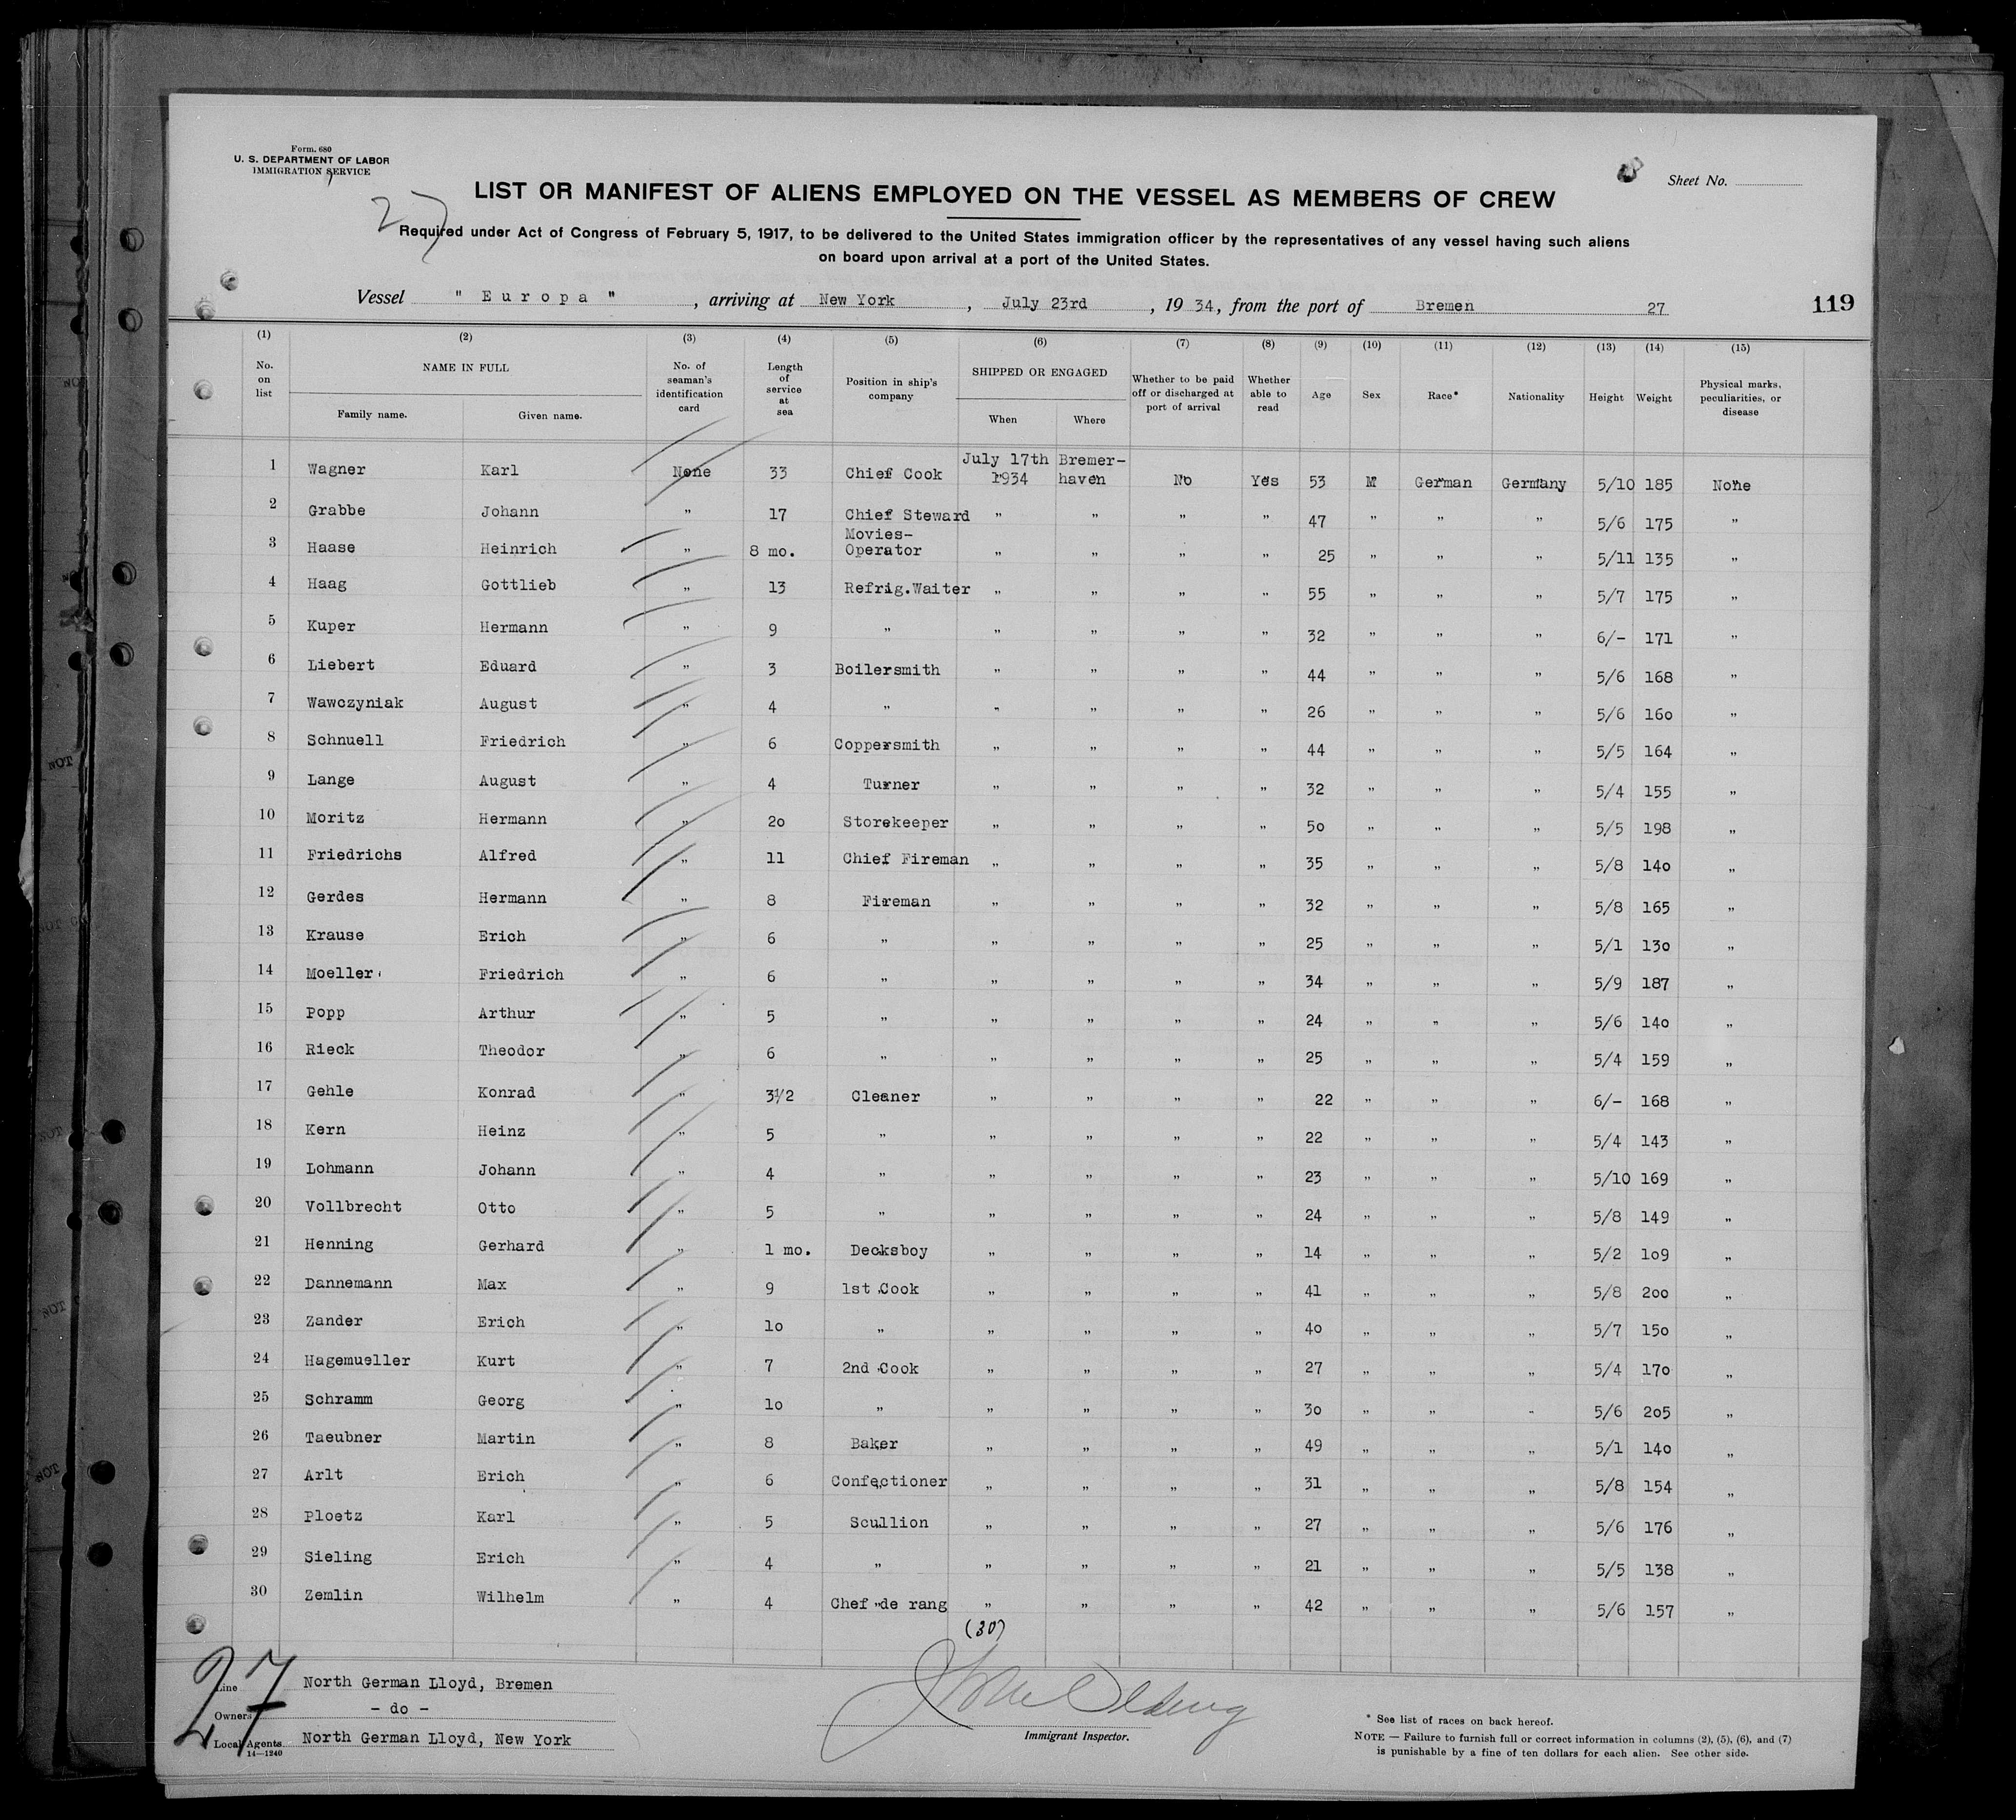 Form. 680
U. S. DEPARTMENT OF LABOR
IMMIGRATION SERVICE
27
Sheet No.
LIST OR MANIFEST OF ALIENS EMPLOYED ON THE VESSEL AS MEMBERS OF CREW
Required under Act of Congress of February 5, 1917, to be delivered to the United States immigration officer by the representatives of any vessel having such aliens
on board upon arrival at a port of the United States.
Vessel " Europa " , arriving at New York , July 23rd , 1934, from the port of Bremen 27 119
(1) (2) (3) (4) (5) (6) (7) (8) (9) (10) (11) (12) (13) (14) (15)
No. on list NAME IN FULL Family name. Given name. No. of seaman's identification card Length of service at sea Position in ship's company SHIPPED OR ENGAGED When Where Whether to be paid off or discharged at port of arrival Whether able to read Age Sex Race* Nationality Height Weight Physical marks, peculiarities, or disease
1 Wagner Karl None 33 Chief Cook July 17th 1934 Bremer-haven No Yes 53 M German Germany 5/10 185 None
2 Grabbe Johann " 17 Chief Steward " " " " 47 " " " 5/6 175 "
3 Haase Heinrich " 8 mo. Movies-Operator " " " " 25 " " " 5/11 135 "
4 Haag Gottlieb " 13 Refrig.Waiter " " " " 55 " " " 5/7 175 "
5 Kuper Hermann " 9 " " " " " 32 " " " 6/- 171 "
6 Liebert Eduard " 3 Boilersmith " " " " 44 " " " 5/6 168 "
7 Wawczyniak August " 4 " " " " " 26 " " " 5/6 160 "
8 Schnuell Friedrich " 6 Coppersmith " " " " 44 " " " 5/5 164 "
9 Lange August " 4 Turner " " " " 32 " " " 5/4 155 "
10 Moritz Hermann " 20 Storekeeper " " " " 50 " " " 5/5 198 "
11 Friedrichs Alfred " 11 Chief Fireman " " " " 35 " " " 5/8 140 "
12 Gerdes Hermann " 8 Fireman " " " " 32 " " " 5/8 165 "
13 Krause Erich " 6 " " " " " 25 " " " 5/1 130 "
14 Moeller Friedrich " 6 " " " " " 34 " " " 5/9 187 "
15 Popp Arthur " 5 " " " " " 24 " " " 5/6 140 "
16 Rieck Theodor " 6 " " " " " 25 " " " 5/4 159 "
17 Gehle Konrad " 3 1/2 Cleaner " " " " 22 " " " 6/- 168 "
18 Kern Heinz " 5 " " " " " 22 " " " 5/4 143 "
19 Lohmann Johann " 4 " " " " " 23 " " " 5/10 169 "
20 Vollbrecht Otto " 5 " " " " " 24 " " " 5/8 149 "
21 Henning Gerhard " 1 mo. Decksboy " " " " 14 " " " 5/2 109 "
22 Dannemann Max " 9 1st Cook " " " " 41 " " " 5/8 200 "
23 Zander Erich " 10 " " " " " 40 " " " 5/7 150 "
24 Hagemueller Kurt " 7 2nd Cook " " " " 27 " " " 5/4 170 "
25 Schramm Georg " 10 " " " " " 30 " " " 5/6 205 "
26 Taeubner Martin " 8 Baker " " " " 49 " " " 5/1 140 "
27 Arlt Erich " 6 Confectioner " " " " 31 " " " 5/8 154 "
28 Ploetz Karl " 5 Scullion " " " " 27 " " " 5/6 176 "
29 Sieling Erich " 4 " " " " " 21 " " " 5/5 138 "
30 Zemlin Wilhelm " 4 Chef de rang " " " " 42 " " " 5/6 157 "
(30)
27
Line North German Lloyd, Bremen
Owners - do -
Local Agents North German Lloyd, New York
14—1240
Immigrant Inspector.
* See list of races on back hereof.
NOTE — Failure to furnish full or correct information in columns (2), (5), (6), and (7)
is punishable by a fine of ten dollars for each alien. See other side.